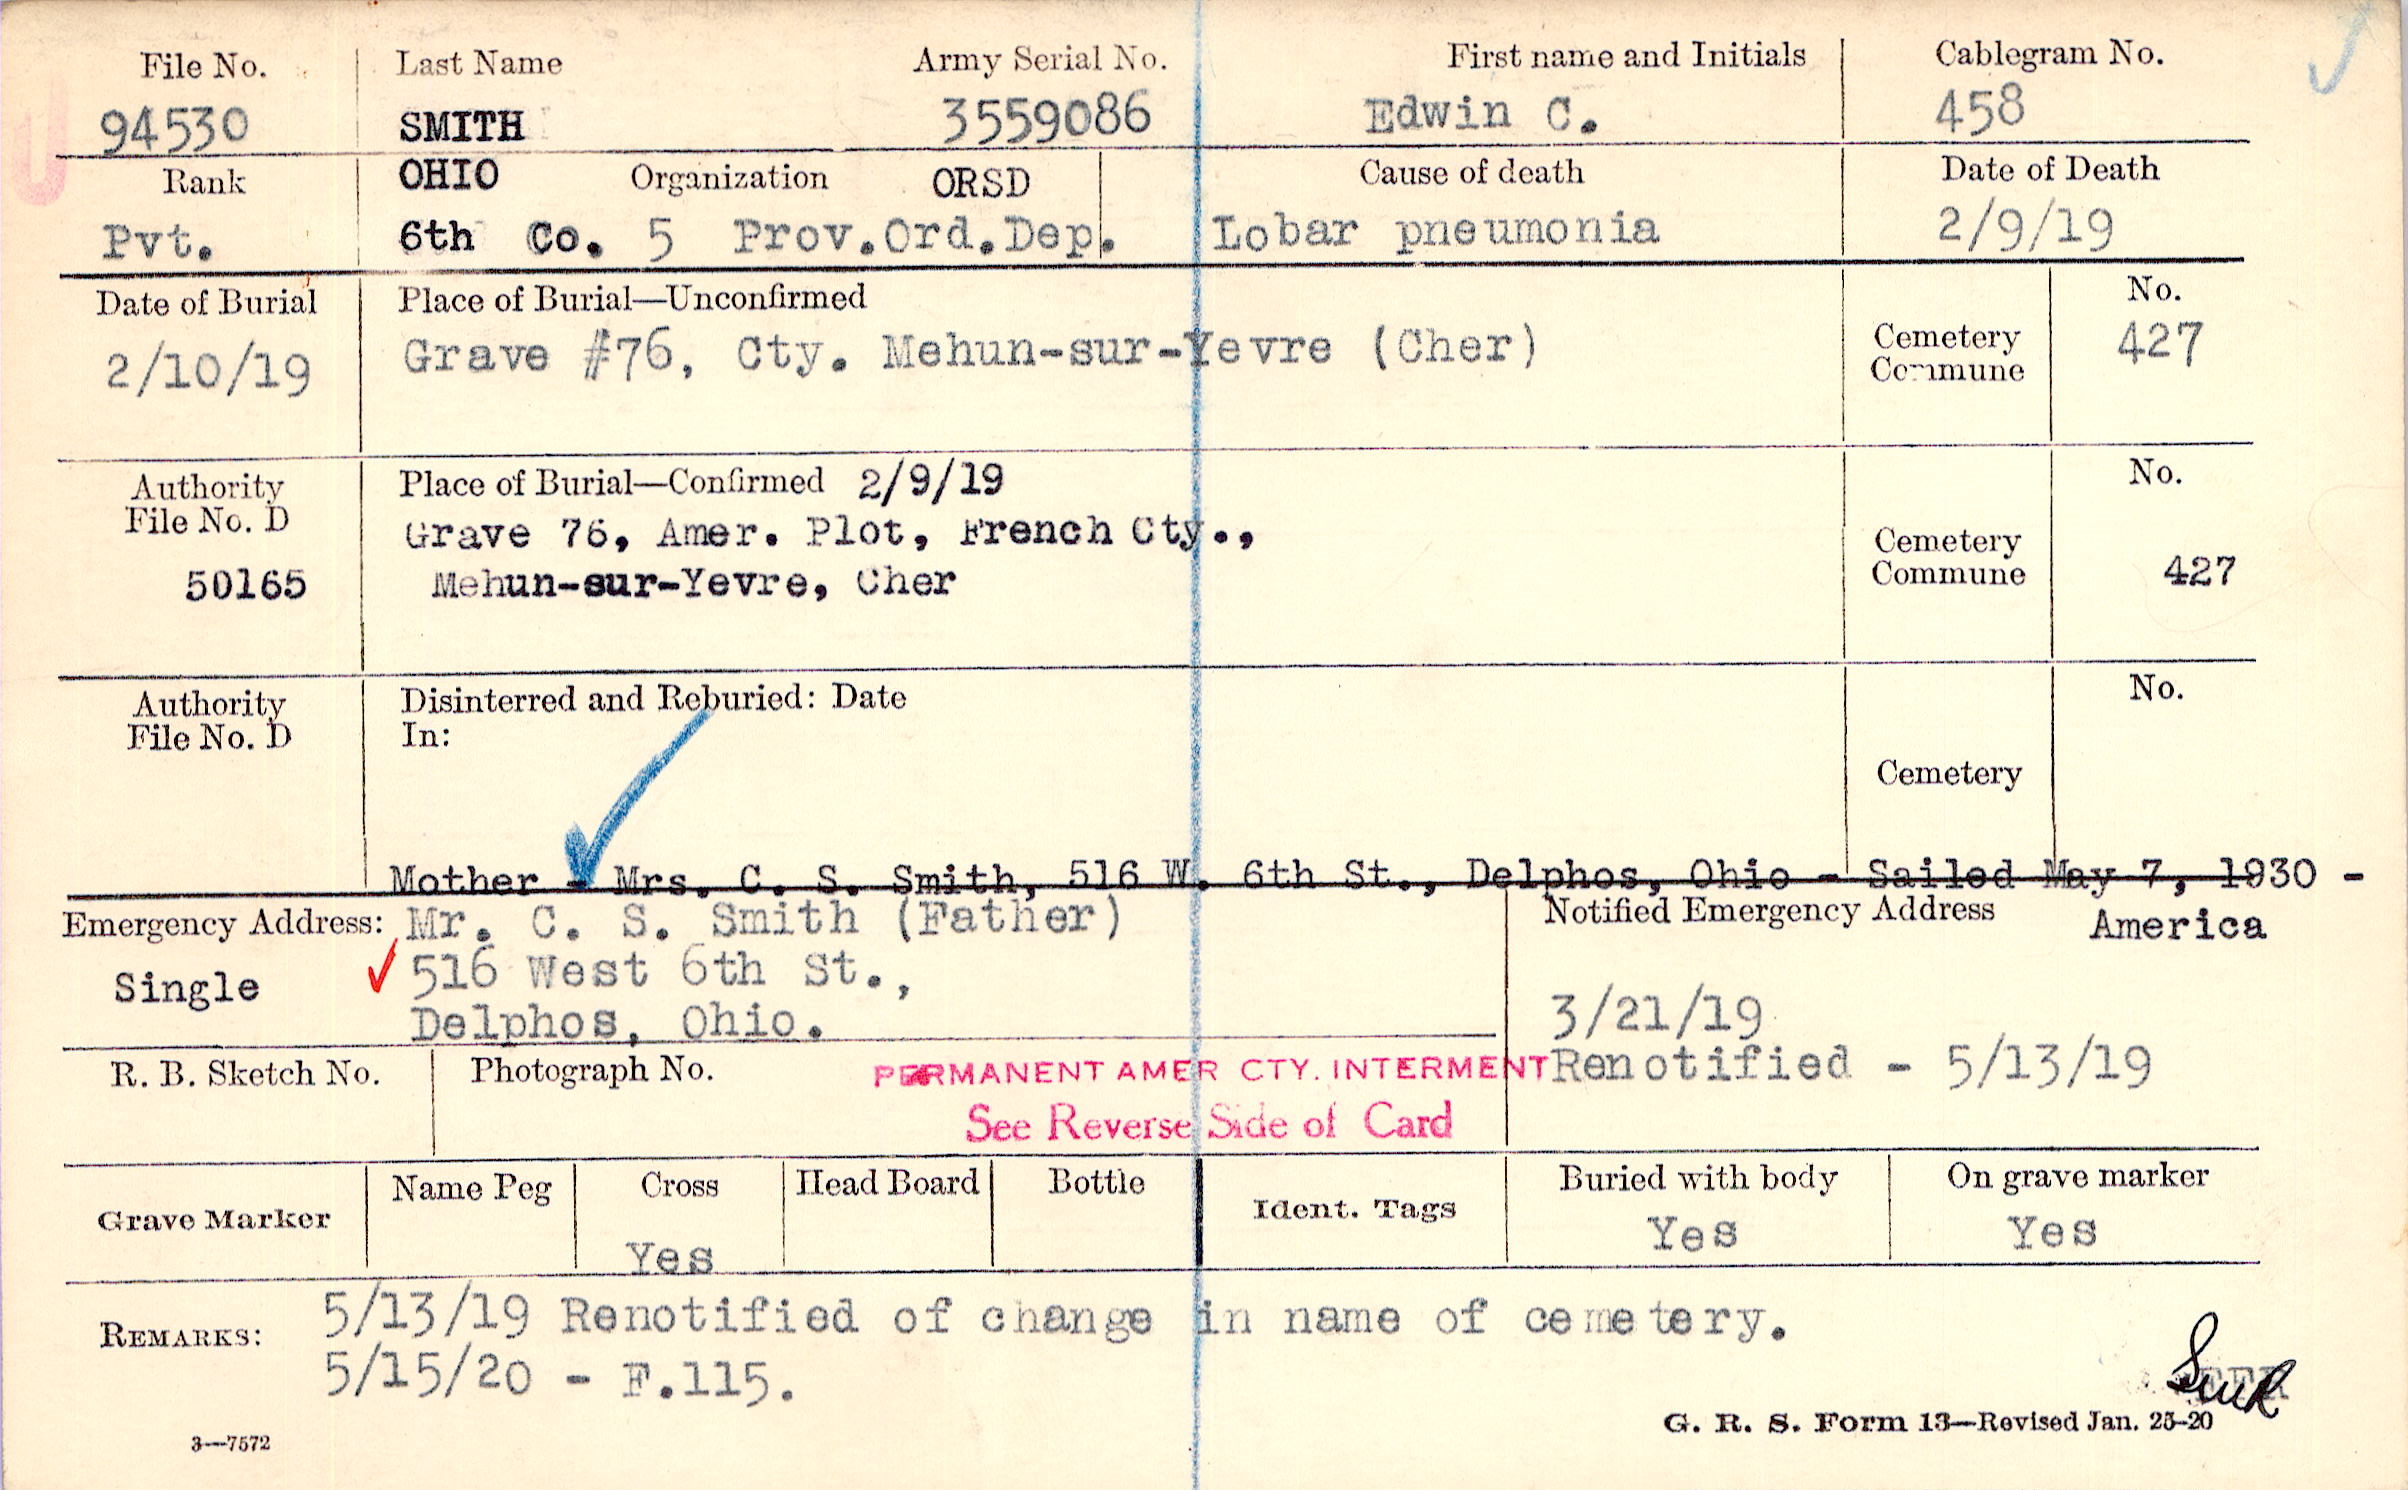 File No. Last Name Army Serial No. First name and Initials Cablegram No.
94530 SMITH 3559086 Edwin C. 458
Rank OHIO Organization ORSD Cause of death Date of Death
Pvt. 6th Co. 5 Prov.Ord.Dep. Lobar pneumonia 2/9/19
Date of Burial Place of Burial—Unconfirmed No.
2/10/19 Grave #76, Cty. Mehun-sur-Yevre (Cher) Cemetery 427
Commune
Authority Place of Burial—Confirmed 2/9/19 No.
File No. D Grave 76, Amer. Plot, French Cty., Cemetery
50165 Mehun-sur-Yevre, Cher Commune 427
Authority Disinterred and Reburied: Date No.
File No. D In:
Cemetery
Mother - Mrs. C. S. Smith, 516 W. 6th St., Delphos, Ohio - Sailed May 7, 1930 -
Emergency Address: Mr. C. S. Smith (Father) Notified Emergency Address America
Single 516 West 6th St.,
Delphos, Ohio. 3/21/19
R. B. Sketch No. Photograph No. PERMANENT AMER CTY. INTERMENT Renotified - 5/13/19
See Reverse Side of Card
Grave Marker Name Peg Cross Head Board Bottle Ident. Tags Buried with body On grave marker
Yes Yes Yes
REMARKS: 5/13/19 Renotified of change in name of cemetery.
5/15/20 - F.115.
3—7572 G. R. S. Form 13—Revised Jan. 25-20